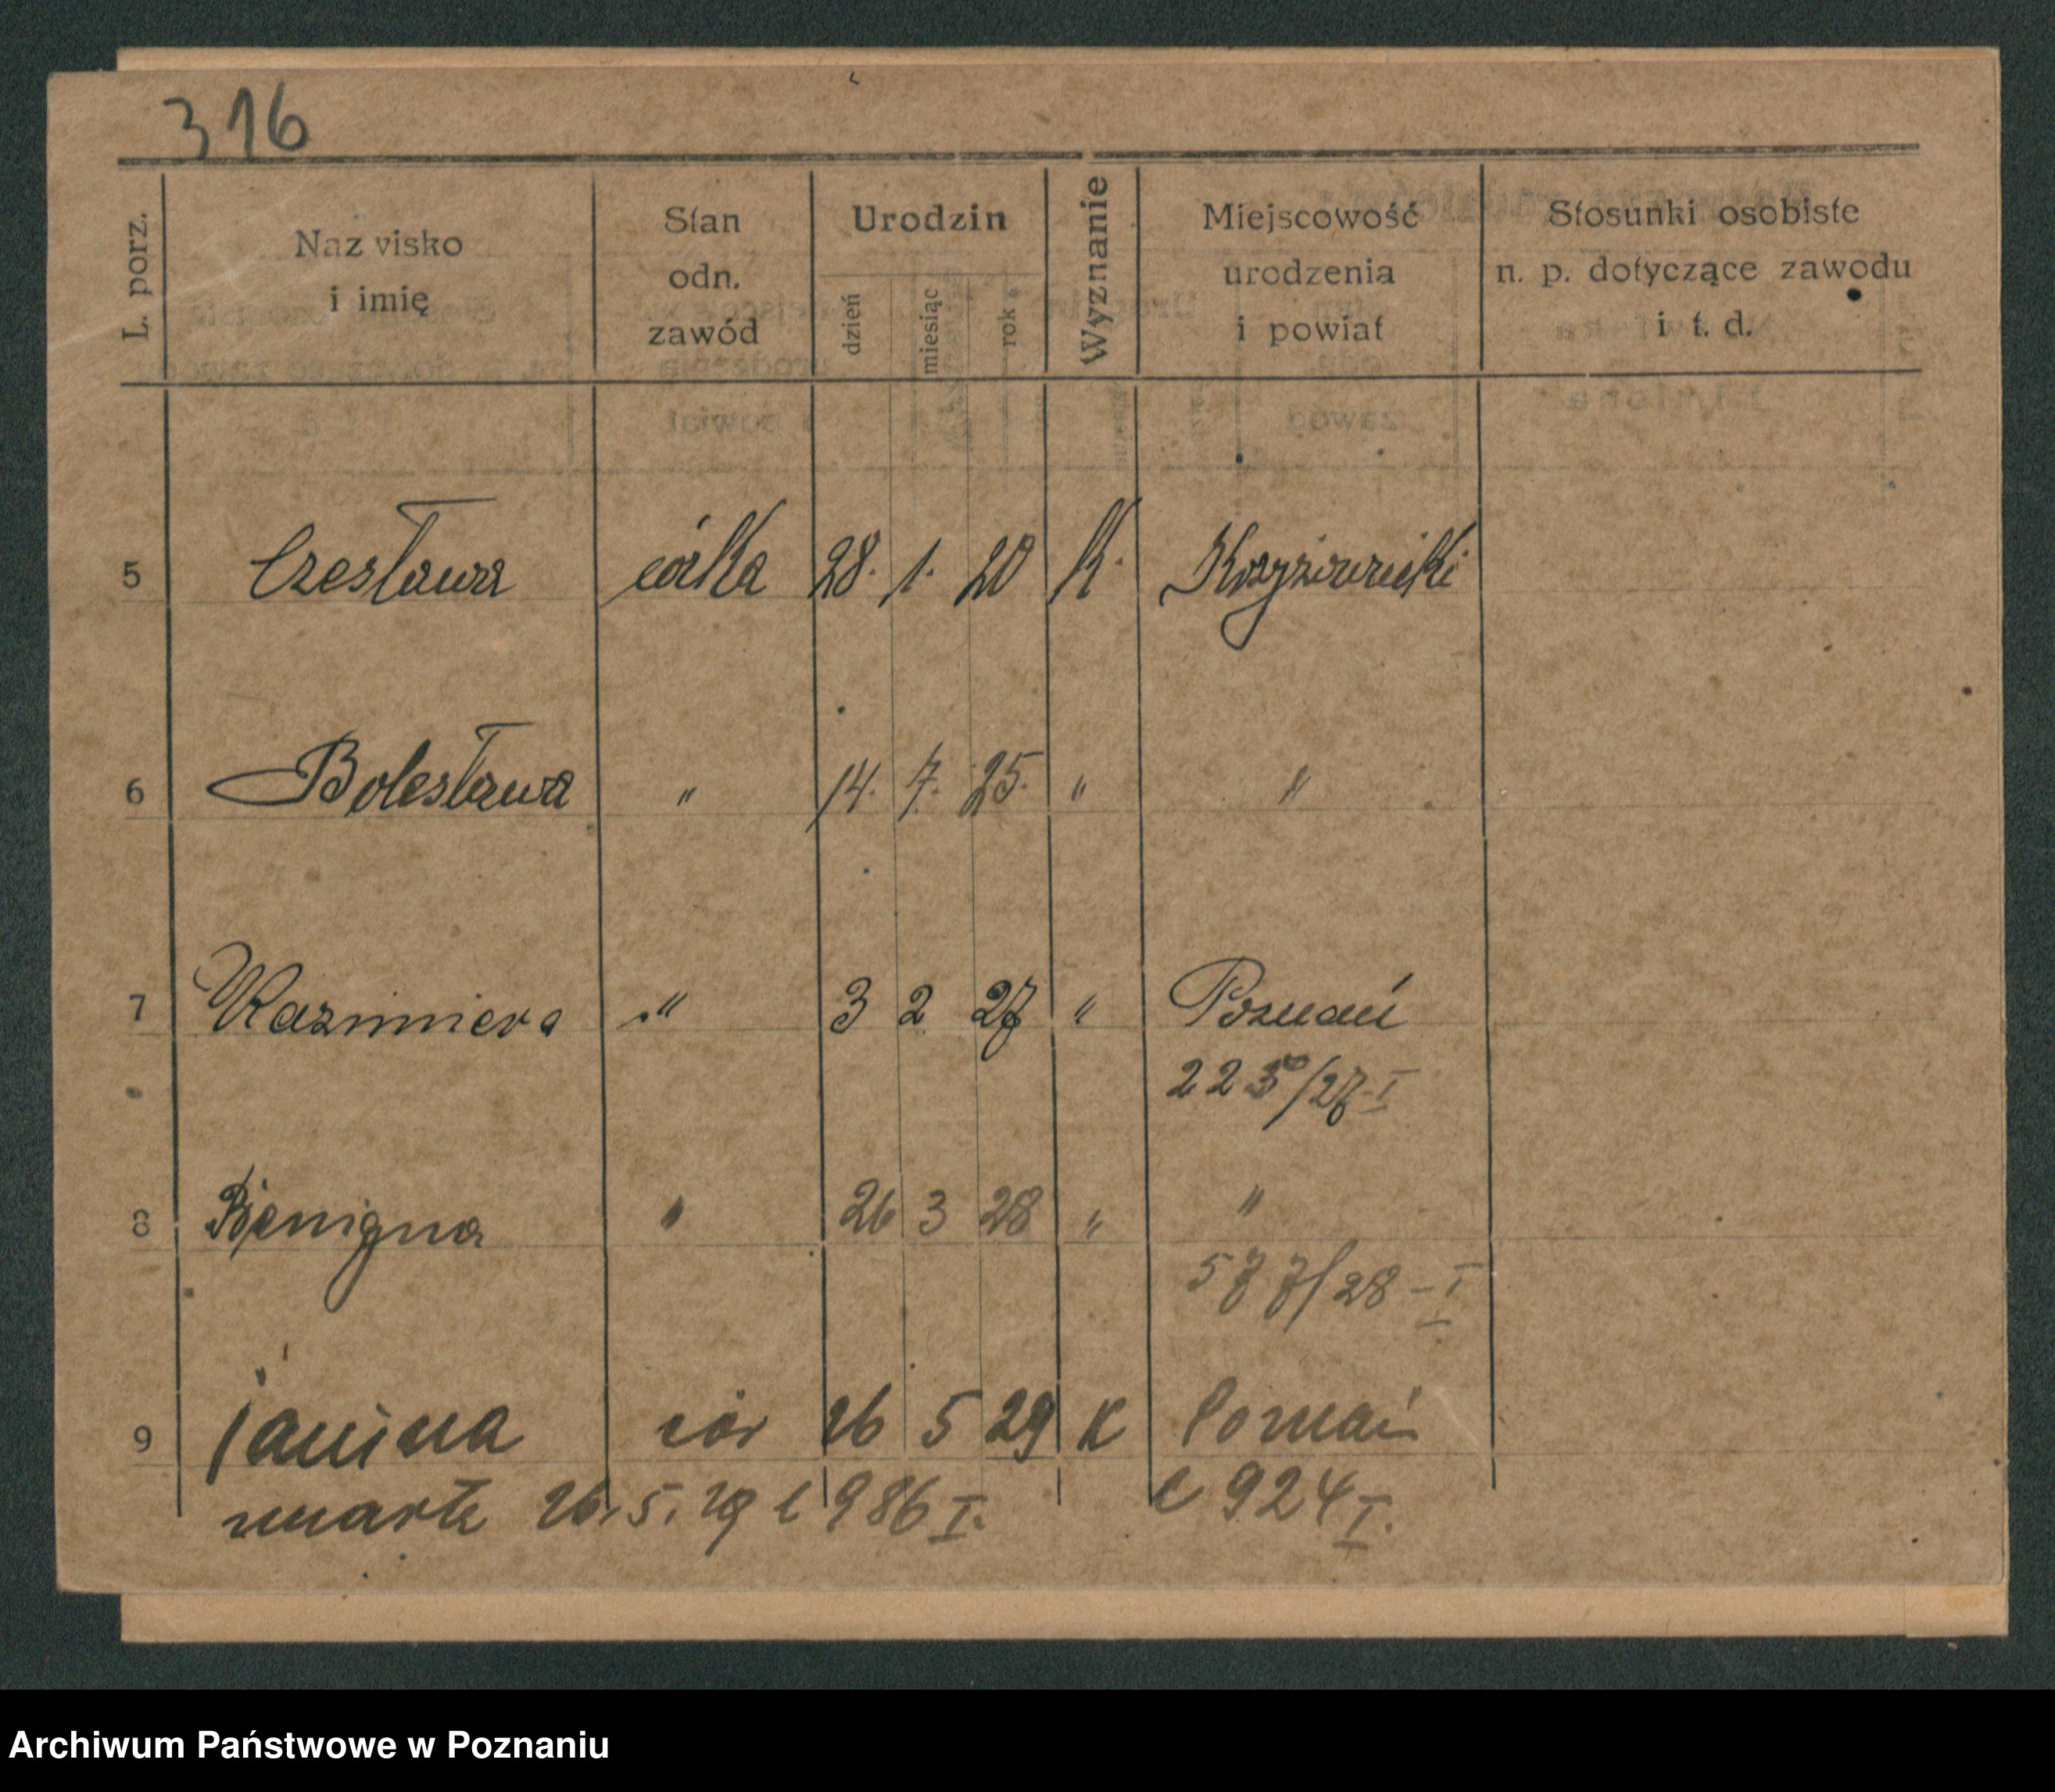 316
L. porz.
Nazwisko i imię
Stan odn. zawód
Urodzin
dzień miesiąc rok
Wyznanie
Miejscowość urodzenia i powiat
Stosunki osobiste n. p. dotyczące zawodu i t. d.
5 Czesława córka 28. 1. 20 K.
6 Bolesława " 14. 7. 25. " "
7 Kazimiera " 3 2 27 " Poznań
/27 I
8 Benigna " 26 3 28 " "
577/28 - I
9 Janina cór 26 5 29 K Poznań
zmarła 26. 5. 29 l 986 I. l 924 I.
Archiwum Państwowe w Poznaniu